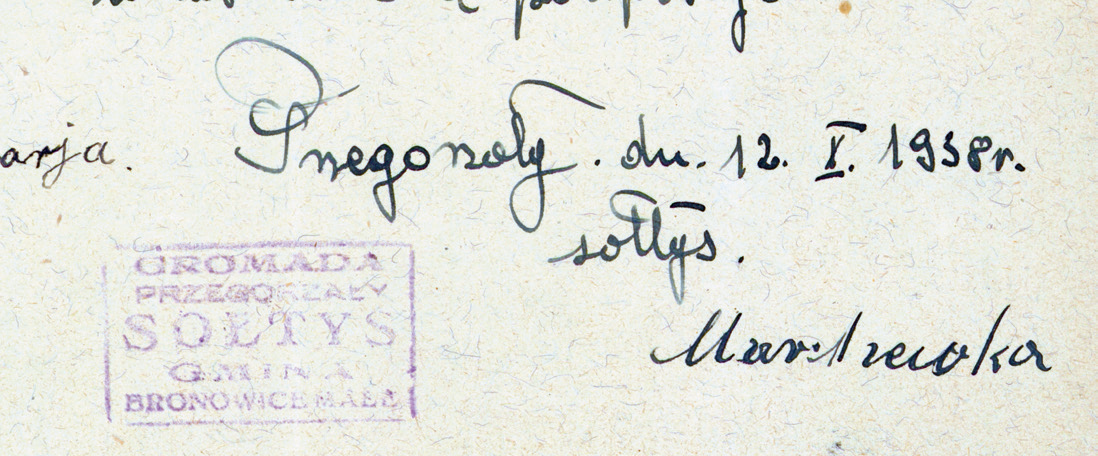 arja. Przegorzały. dn. 12. V. 1938r.
sołtys.
GROMADA
PRZEGORZAŁY
SOŁTYS
GMINA
BRONOWICE MAŁE